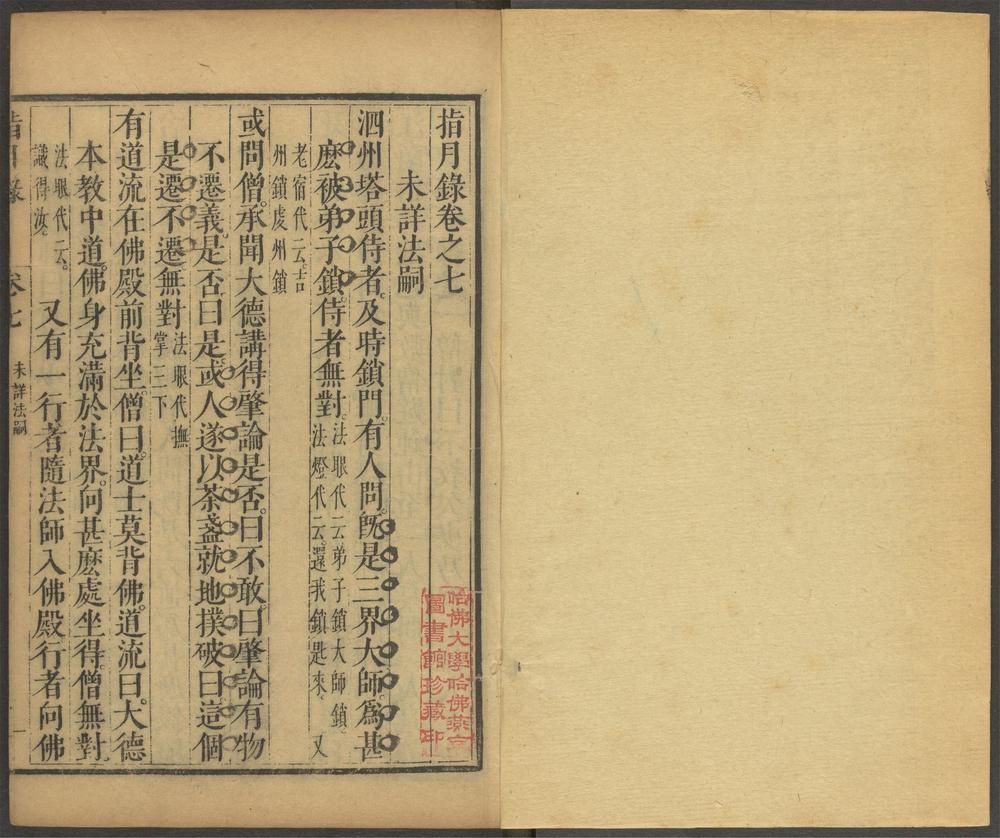 指月錄卷之七
未詳法嗣
泗州塔頭侍者。及時鎖門。有人問。旣是三界大師。爲甚
麽被弟子鎖。侍者無對法眼代云弟子鎖大師鎖。法燈代云。還我鎖匙來。又
老宿代云。吉州鎖虔州鎖
或問僧。承聞大德講得肇論是否。曰不敢。曰肇論有物
不遷義。是否曰是。或人遂以茶盞就地撲破曰。這個
是遷不遷無對法眼代撫掌三下
有道流在佛殿前背坐。僧曰。道士莫背佛。道流曰。大德
本教中道。佛身充滿於法界。向甚麽處坐得。僧無對
法眼代云。識得汝。
又有一行者隨法師入佛殿行者向佛
指月錄
卷七
未詳法嗣
一
哈佛大學哈佛燕京
圖書館珍藏印